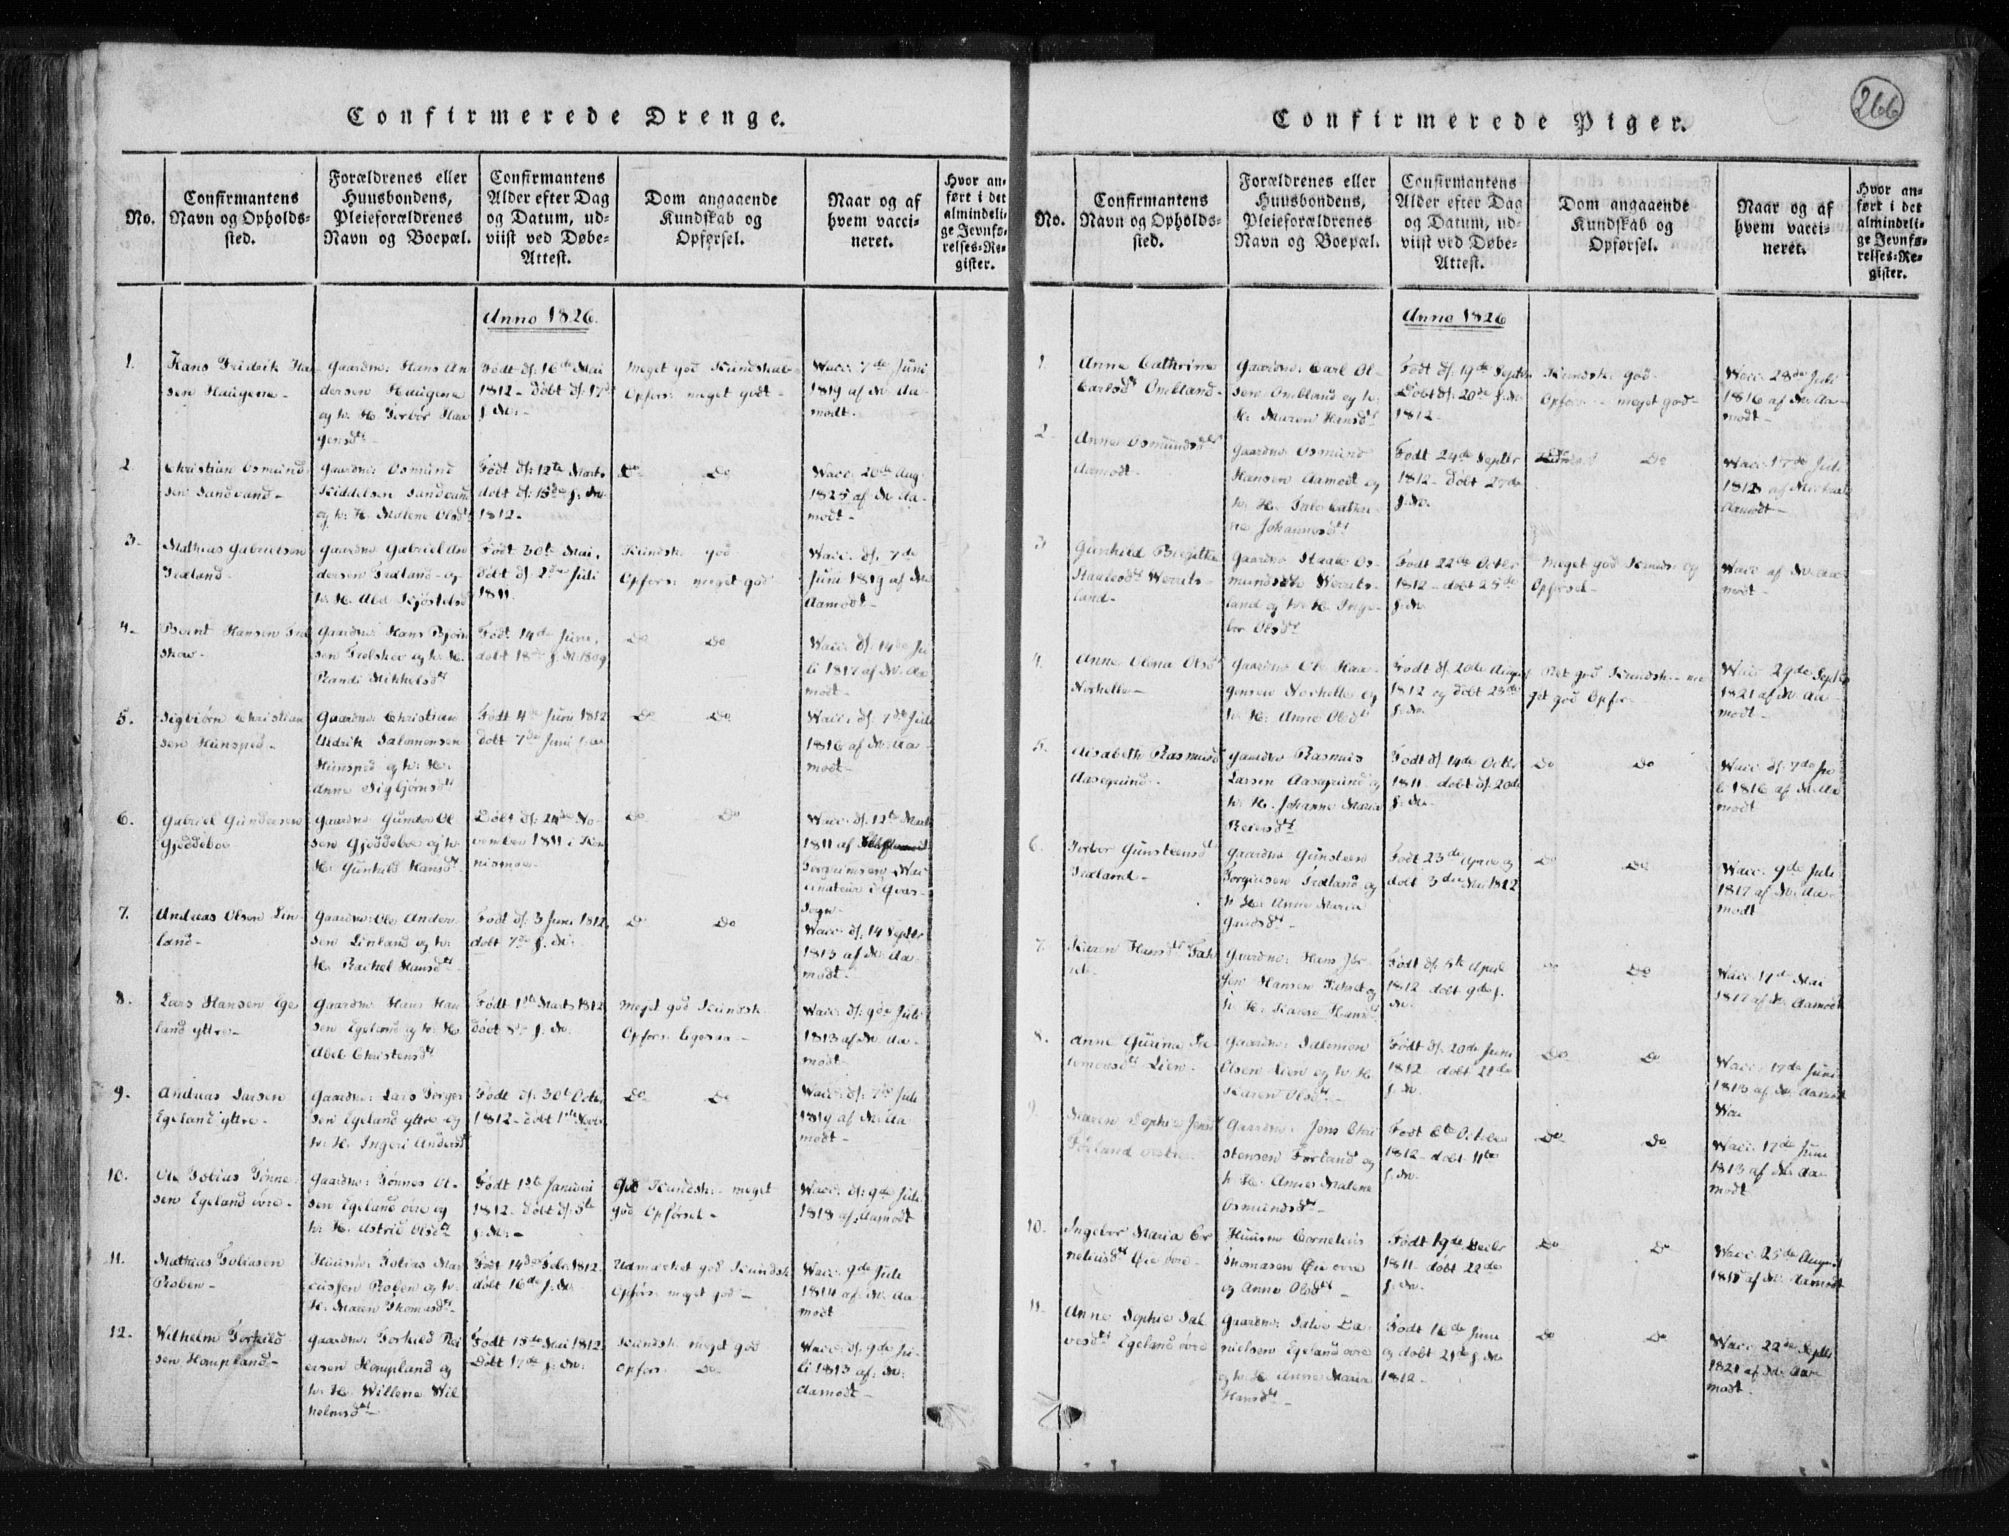 266
Confirmerede Drenge.
No.
Confirmantens
Navn og Opholds-
sted.
Forældrenes eller
Huusbondens,
Pleieforældrenes
Navn og Boepæl.
Confirmantens
Alder efter Dag
og Datum, ud-
viist ved Døbe-
Attest.
Dom angaaende
Kundskab og
Opførsel.
Naar og af
hvem vacci-
neret.
Hvor an-
ført i det
almindeli-
ge Jevnfø-
relses-Re-
gister.
Anno 1826.
1.
Hans Fridrik Han
sen Haugene
Gaardm: Hans An
dersen Haugene
og h: H: Torbor Haa
gensdt
Født d: 16de Mai
1812 - døbt d: 17de
s. M:
Meget god Kundskab
Opførs: meget godt
Vacc: 7de Juni
1819 af M: Aa
modt.
2.
Christian Osmund
sen Sandvand
Gaardm: Osmund
Kiddelsen Sandvand
og h: H: Malene Olsdt
Født d: 12te Marts
døbt d: 15de s: M:
1812
Do Do
Vacc: 20de Aug
1825 af M: Aa-
modt
3.
Mathias Gabrielsen
Tredland
Gaardm Gabriel An
dersen Tredland og
h: H. Abel Kjøstelsd
Født 30te Mai,
døbt d: 2den Juli
1811.
Kundsk: god
Opførs: meget god
Vacc: d: 7de
Juni 1819 af M:
Aamodt
4.
Bernt Hansen
Gaardm: Hans Bjørn
sen og h: H.
Randi Mikkelsdt
Født 14de Juni,
døbt 18de s. M: 1809
Do Do
Vacc: d: 14de Ju
li 1817 af M: Aa
modt
5.
Sigbiørn Christian
sen Hunsped
Gaardm: Christian
Uldrik Salomonsen
Hunsped og h: H:
Anne Sigbjørnsdt
Født 4de Juni 1812
døbt 7de Juni s: a:
Do Do
Vacc: d: 7de Juli
1816 af M: Aa-
modt
6.
Gabriel Gundersen
Gjeddeboe
Gaardm: Gunder Ol
sen Gjeddeboe og h:
H: Gunhild Hansdt
Døbt d: 24de No-
vember 1811 i
Do Do
Vacc: d: 12te Marts
1811 af
Torgrimsen Vac
cinateur i
Sogn
7.
Andreas Olsen Lin
land
Gaardm: Ole Ander-
sen Linland og h:
H: Rachel Hansdt
Født d: 3 Juni 1812,
døbt 7de s. M:
Do Do
Vacc: d: 14 Septbr
1813 af M: Aa-
modt
8.
Lars Hansen Ege
land yttre
Gaardm: Hans Han
sen Egeland og h: H:
Abel Christensdt
Født 1ste Marts 1812
døbt 8de s. M:
Meget god Kundsk
Opførs: ligesaa
Vacc: d: 9de Juli
1813 af M: Aa-
modt
9.
Andreas Larsen
Egeland yttre
Gaardm: Lars Torger
sen Egeland yttre og
h: H: Ingeri Andersdt
Født d: 30te Octbr
1812 - døbt 1ste Novbr
Do Do
Vacc: d: 7de Juli
1819 af M: Aa
modt
10.
Ole Tobias Tønne
sen Egeland øvre
Gaardm: Tønnes Ol-
sen Egeland øvre og
h: H: Astrid Olsdt
Født 1ste Januari
1812 - døbt d: 5te
s. M:
God Kundsk: meget
god Opførsel
Vacc: d: 9de Juli
1818 af Aamodt
11.
Mathias Tobiasen
Roben
Huusm: Tobias Mar
cussen Roben og h:
H: Maren Thomasdt
Født 14de Febr: 1812
døbt 16de s. M:
Udmærket god Kundsk
Opførs: meget god
Vacc: 9de Juli
1814 af M: Aa-
modt
12.
Wilhelm Torkild
sen Hompland
Gaardm: Torkild Rei
ersen Hompland og
h: H: Willene Wil
helmsdt
Født 15de Mai 1812
Døbt 17de s: M:
Kundsk: meget god
Opførs: Do
Vacc: d: 9de Ju
li 1813 af: M:
Aamodt
Confirmerede Piger.
No.
Confirmantens
Navn og Opholds-
sted.
Forældrenes eller
Huusbondens,
Pleieforældrenes
Navn og Boepæl.
Confirmantens
Alder efter Dag
og Datum, ud-
viist ved Døbe-
Attest.
Dom angaaende
Kundskab og
Opførsel.
Naar og af
hvem vacci-
neret.
Hvor an-
ført i det
almindeli-
ge Jevnfø-
relses-Re-
gister.
Anno 1826
1.
Anne Cathrine
Carlsdt Omland
Gaardm: Carl Ol-
sen Omland og h:
H: Maren Hansdt
Født d: 19de Septbr
Døbt d: 20de s. M:
1812
Kundsk: god
Opførs: meget god
Vacc: 28de Juli
1816 af M: Aa-
modt
2.
Anne Osmundsdtr
Aamodt
Gaardm Osmund
Hansen Aamodt og
h: H: Cathri
ne Johannesdt
Født 24de Septbr
1812 - døbt 27de
s. M:
Do
Vacc: 17de Juli
1813 af
Aamodt
3.
Gunhild Birgitte
Staalesdt
land
Gaardm Staale Os-
mundsen
land og h: H: Inge-
bor Olsdt
Født 22de Octbr
1812 - døbt 25de
s. M:
Meget god Kundsk og
Opførsel
Vacc af M: Aa-
modt
4.
Anne Olena Olsdt
Norhelle
Gaardm Ole Haa-
gensen Norhelle og
h: H: Anne Olsdt
Født d: 20de August
1812 og døbt 23de
s. M:
Ret god Kundsk: me
get god Opfør
Vacc 29de Septbr
1821 af M: Aa-
modt
5.
Elisabeth Rasmusdt
Aasegrund
Gaardm Rasmus
Larsen Aasegrund og
h: H. Johanne Maria
Reiersdt
Født d: 14de Octbr
1811 døbt d: 20de
s. M:
Do Do
Vacc: d: 7de Ju
li 1816 af M: Aa
modt
6.
Torbor Gunsteensdt
Tredland
Gaardm Gunsteen
Torgiusen Tredland og
h: H: Anne Maria
Født 23de April og
døbt 3die Mai 1812
Do Do
Vacc: 9de Juli
1817 af M: Aa-
modt
7.
Karen Hansdt
Gaardm: Hans Jør
gen Hansen og
h: H: Karen Hansdt
Født d: 5te April
1812 døbt 9de s.
M:
Do Do
Vacc: 17de Mai
1817 af M: Aamodt
8.
Anne Gurina Sa-
lomonsdt Lien
Gaardm: Salomon
Olsen Lien og h: H:
Karen Olsdt
Født d: 20de Juni
1812 døbt 21de
s. M:
Do Do
Vacc: 17de Juni
1813 af M: Aamodt
9.
Maren Sophie Jensdt
Førland vestre
Gaardm: Jens Chri
stensen Førland og
h: H: Anne Malene
Osmundsdt
Født 6te October
1812 - døbt 11te
s. M:
Do Do
Vacc: 17de Juni
1813 af M: Aa-
modt
10.
Ingebor Maria Cor
neliusdt Øie øvre
Huusm Cornelius
Thomasen Øie øvre
og Anne Olsdt
Født 19de Decbr
1811 - døbt 22de
s. M:
Do Do
Vacc: 25de August
1815 af M: Aamodt
11.
Anne Sophie Sal
vesdt Egeland øvre
Gaardm: Salve Da-
nielsen Egeland øvre
og h: H: Anne Maria
Hansdt
Født 16de Juni
og døbt 21de s. M:
1812
Do Do
Vacc: 22de Septbr
1821 af M: Aa-
modt